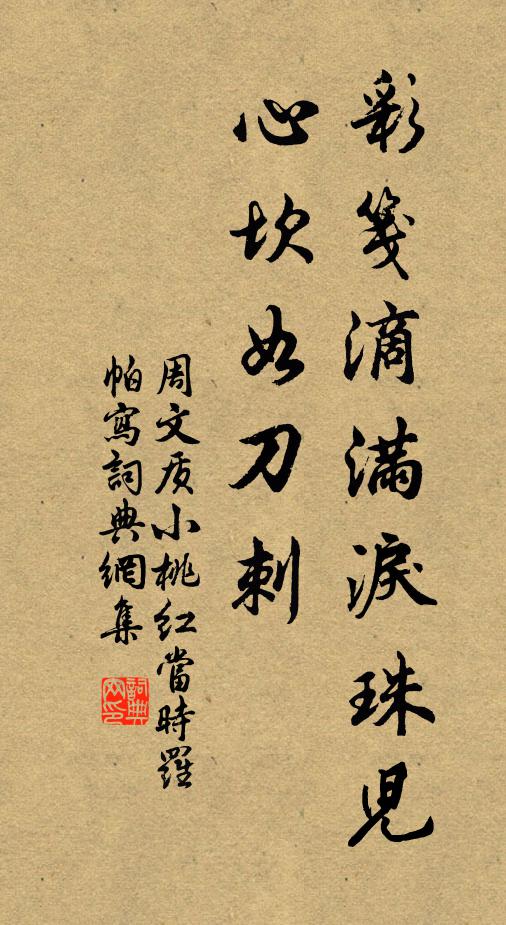 彩箋滴滿淚珠兒
心坎如刀刺
周文质小桃紅當時羅
帕寫詞典網集
詞典网印